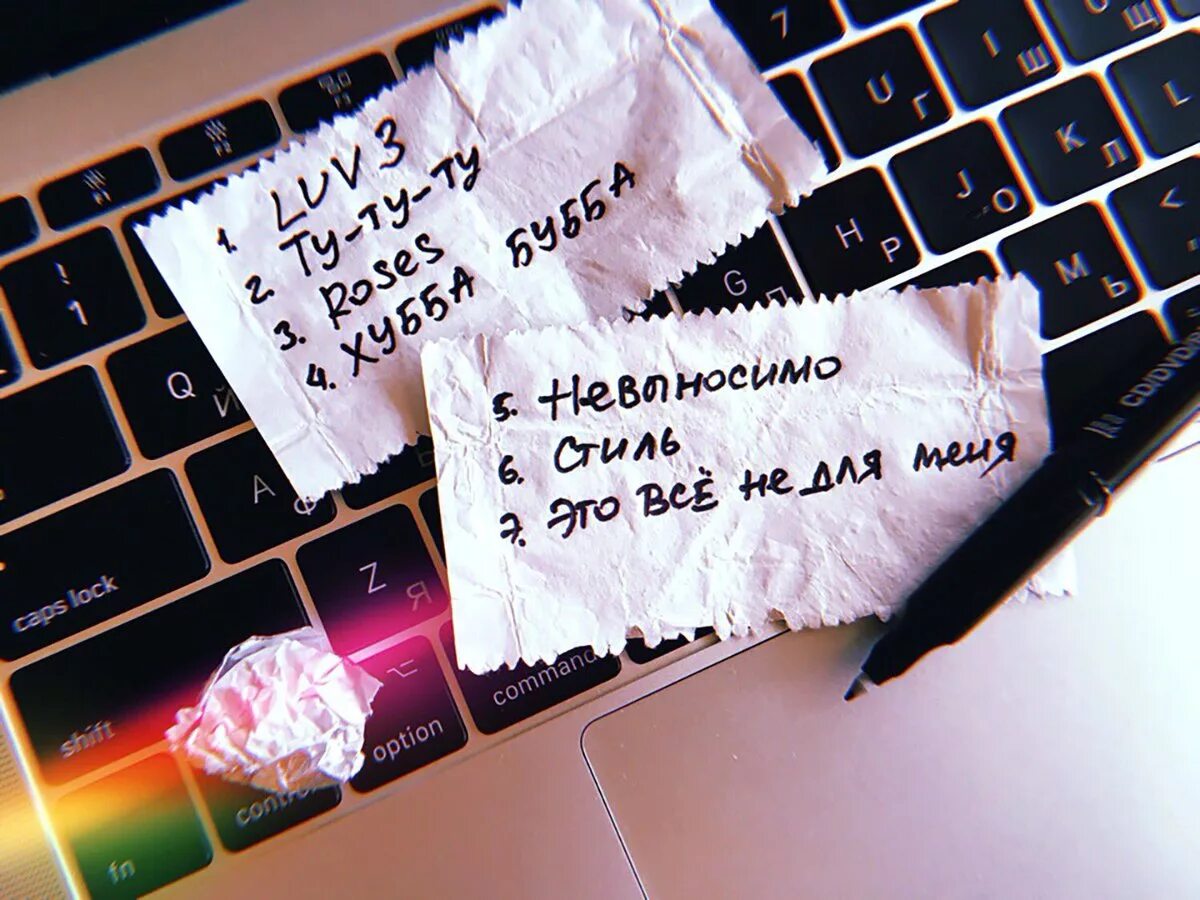 1. LUV 3
2. ТУ-ТУ-ТУ
3. Roses
4. ХУББА БУББА
5. Невыносимо
6. Стиль
7. Это всё не для меня
7
U Г
I Ш
Щ
К Л
L
J О
Н Р
<
М Ь
G
!
1
Q Й
A Ф
Z Я
caps lock
shift
fn
control
option
command
CD/DVD